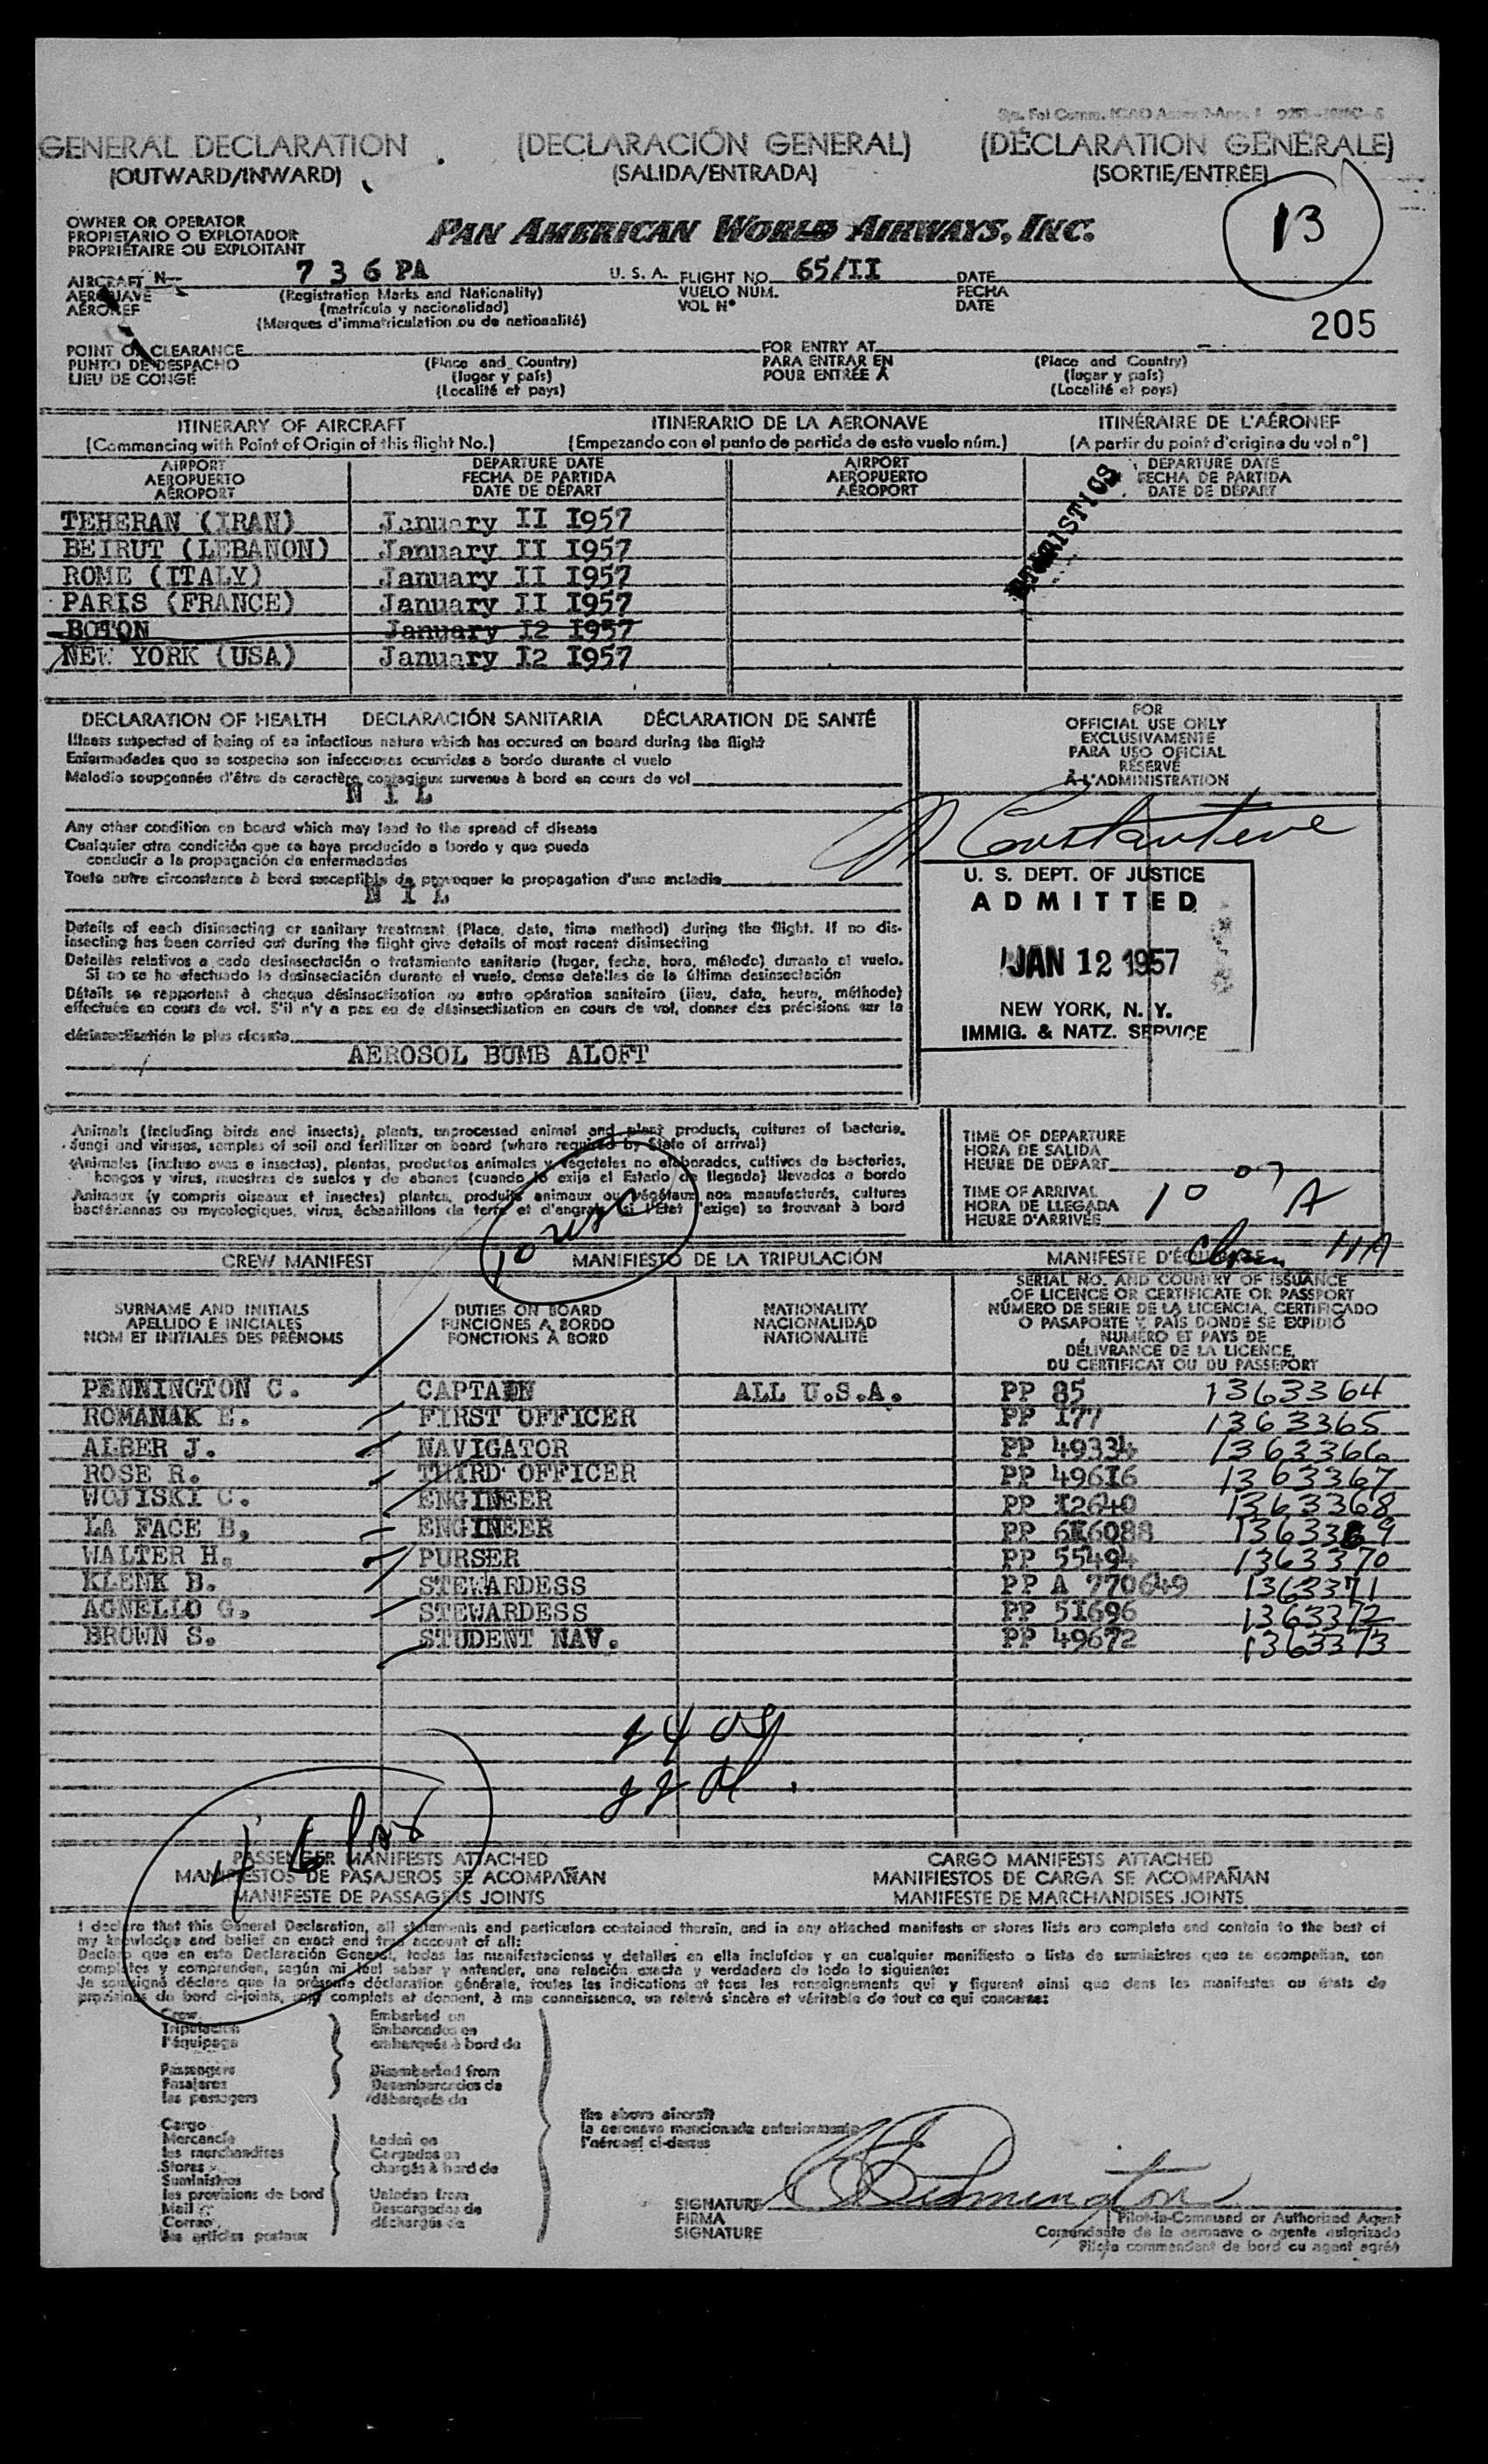 GENERAL DECLARATION (DECLARACIÓN GENERAL) (DÉCLARATION GÉNÉRALE)
(OUTWARD/INWARD) (SALIDA/ENTRADA) (SORTIE/ENTRÉE)
13
OWNER OR OPERATOR
PROPIETARIO O EXPLOTADOR
PROPRIÉTAIRE OU EXPLOITANT
PAN AMERICAN WORLD AIRWAYS, INC.
AIRCRAFT N 736PA U. S. A. FLIGHT NO. 65/II DATE
AERONAVE (Registration Marks and Nationality) VUELO NÚM. FECHA
AÉRONEF (matrícula y nacionalidad) VOL Nº DATE
(Marques d'immatriculation ou de nationalité)
205
POINT OF CLEARANCE FOR ENTRY AT
PUNTO DE DESPACHO (Place and Country) PARA ENTRAR EN (Place and Country)
LIEU DE CONGÉ (lugar y país) POUR ENTRÉE À (lugar y país)
(Localité et pays) (Localité et pays)
ITINERARY OF AIRCRAFT ITINERARIO DE LA AERONAVE ITINÉRAIRE DE L'AÉRONEF
(Commencing with Point of Origin of this flight No.) (Empezando con el punto de partida de este vuelo núm.) (A partir du point d'origine du vol nº)
AIRPORT DEPARTURE DATE AIRPORT DEPARTURE DATE
AEROPUERTO FECHA DE PARTIDA AEROPUERTO FECHA DE PARTIDA
AÉROPORT DATE DE DÉPART AÉROPORT DATE DE DÉPART
TEHERAN (IRAN) January II I957
BEIRUT (LEBANON) January II I957
ROME (ITALY) January II I957
PARIS (FRANCE) January II I957
BOTON January I2 I957
NEW YORK (USA) January I2 I957
DECLARATION OF HEALTH DECLARACIÓN SANITARIA DÉCLARATION DE SANTÉ
Illness suspected of being of an infectious nature which has occured on board during the flight
Enfermedades que se sospecha son infecciosas ocurridas a bordo durante el vuelo
Maladie soupçonnée d'être de caractère contagieux survenue à bord en cours de vol
N I L
Any other condition on board which may lead to the spread of disease
Cualquier otra condición que se haya producido a bordo y que pueda
conducir a la propagación de enfermedades
Toute autre circonstance à bord susceptible de provoquer la propagation d'une maladie
N I L
Details of each disinsecting or sanitary treatment (Place, date, time method) during the flight. If no dis-
insecting has been carried out during the flight give details of most recent disinsecting
Detalles relativos a cada desinsectación o tratamiento sanitario (lugar, fecha, hora, método) durante el vuelo.
Si no se ha efectuado la desinseciación durante el vuelo, dense detalles de la última desinseciación
Détails se rapportant à chaque désinsectisation ou autre opération sanitaire (lieu, date, heure, méthode)
effectuée en cours de vol. S'il n'y a pas eu de désinsectisation en cours de vol, donner des précisions sur la
désinsectisation la plus récente
AEROSOL BUMB ALOFT
FOR
OFFICIAL USE ONLY
EXCLUSIVAMENTE
PARA USO OFICIAL
RÉSERVÉ
À L'ADMINISTRATION
Constantine
U. S. DEPT. OF JUSTICE
ADMITTED
JAN 12 1957
NEW YORK, N. Y.
IMMIG. & NATZ. SERVICE
Animals (including birds and insects), plants, unprocessed animal and plant products, cultures of bacteria,
fungi and viruses, samples of soil and fertilizer on board (where required by State of arrival)
Animales (incluso aves e insectos), plantas, productos animales y vegetales no elaborados, cultivos de bacterias,
hongos y virus, muestras de suelos y de abonos (cuando lo exija el Estado de llegada) llevados a bordo
Animaux (y compris oiseaux et insectes) plantes, produits animaux ou végétaux non manufacturés, cultures
bactériennes ou mycologiques, virus, échantillons de terre et d'engrais (si l'État l'exige) se trouvant à bord
TIME OF DEPARTURE
HORA DE SALIDA
HEURE DE DÉPART
TIME OF ARRIVAL
HORA DE LLEGADA
HEURE D'ARRIVÉE
10 07 A
CREW MANIFEST MANIFIESTO DE LA TRIPULACIÓN MANIFESTE D'ÉQUIPAGE
SURNAME AND INITIALS
APELLIDO E INICIALES
NOM ET INITIALES DES PRÉNOMS
DUTIES ON BOARD
FUNCIONES A BORDO
FONCTIONS À BORD
NATIONALITY
NACIONALIDAD
NATIONALITÉ
SERIAL NO. AND COUNTRY OF ISSUANCE
OF LICENCE OR CERTIFICATE OR PASSPORT
NÚMERO DE SERIE DE LA LICENCIA, CERTIFICADO
O PASAPORTE Y PAÍS DONDE SE EXPIDIÓ
NUMÉRO ET PAYS DE
DÉLIVRANCE DE LA LICENCE,
DU CERTIFICAT OU DU PASSEPORT
PENNINGTON C. CAPTAIN ALL U.S.A. PP 85 1363364
ROMANAK E. FIRST OFFICER PP I77 1363365
ALBER J. NAVIGATOR PP 49334 1363366
ROSE R. THIRD OFFICER PP 496I6 1363367
WOJISKI C. ENGINEER PP I2640 1363368
LA FACE B, ENGINEER PP 6I6088 1363369
WALTER H. PURSER PP 55494 1363370
KLENK B. STEWARDESS PP A 770649 1363371
AGNELLO G. STEWARDESS PP 5I696 1363372
BROWN S. STUDENT NAV. PP 49672 1363373
PASSENGER MANIFESTS ATTACHED CARGO MANIFESTS ATTACHED
MANIFIESTOS DE PASAJEROS SE ACOMPAÑAN MANIFIESTOS DE CARGA SE ACOMPAÑAN
MANIFESTE DE PASSAGERS JOINTS MANIFESTE DE MARCHANDISES JOINTS
I declare that this General Declaration, all statements and particulars contained therein, and in any attached manifests or stores lists are complete and contain to the best of
my knowledge and belief an exact and true account of all:
Declaro que en esta Declaración General, todas las manifestaciones y detalles en ella incluídos y en cualquier manifiesto o lista de suministros que se acompañan, son
completos y comprenden, según mi leal saber y entender, una relación exacta y verdadera de todo lo siguiente:
Je soussigné déclare que la présente déclaration générale, toutes les indications et tous les renseignements qui y figurent ainsi que dans les manifestes ou états de
provisions de bord ci-joints, sont complets et donnent, à ma connaissance, un relevé sincère et véritable de tout ce qui concerne:
Crew Embarked on
Tripulación Embarcados en
l'équipage embarqués à bord de
Passengers Disembarked from
Pasajeros Desembarcados de
les passagers débarqués de
the above aircraft
la aeronave mencionada anteriormente
l'aéronef ci-dessus
Cargo
Mercancía Laden on
les marchandises Cargados en
Stores chargés à bord de
Suministros
les provisions de bord Unladen from
Mail Descargados de
Correo déchargés de
les articles postaux
SIGNATURE Pennington
FIRMA Pilot-in-Command or Authorized Agent
SIGNATURE Comandante de la aeronave o agente autorizado
Pilote commandant de bord ou agent agréé